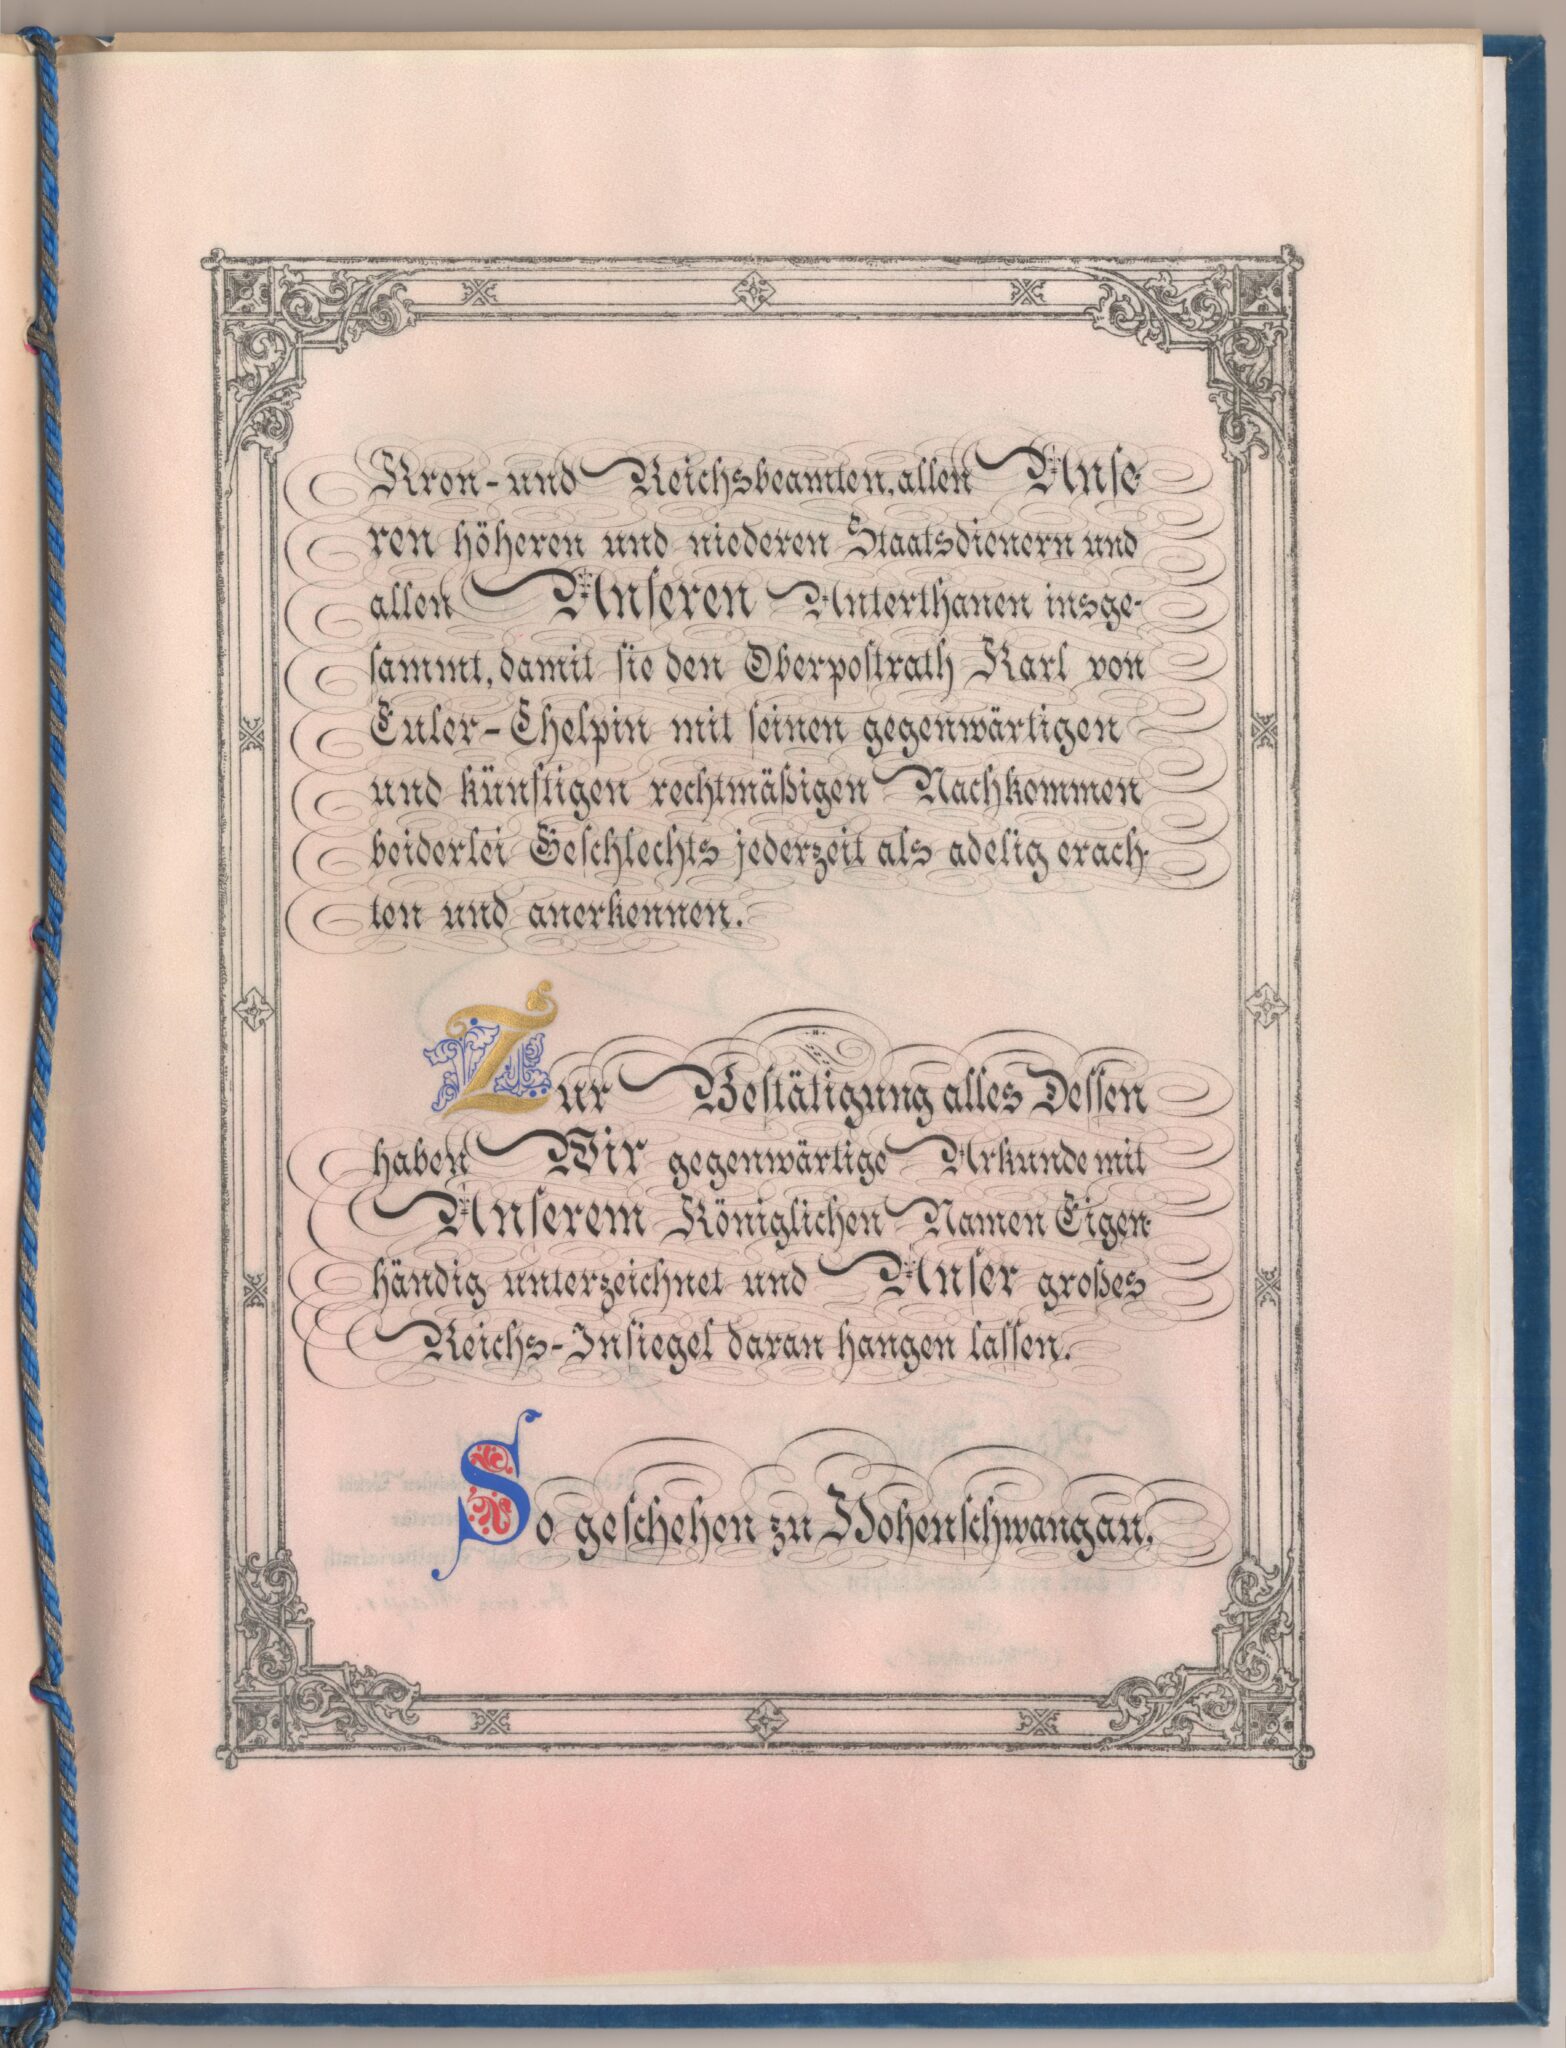 Kron- und Reichsbeamten, allen Unse-
ren höheren und niederen Staatsdienern und
allen Unseren Unterthanen insge-
sammt, damit sie den Oberpostrath Karl von
Euler-Chelpin mit seinen gegenwärtigen
und künftigen rechtmäßigen Nachkommen
beiderlei Geschlechts jederzeit als adelig erach-
ten und anerkennen.
Zur Bestätigung alles Dessen
haben Wir gegenwärtige Urkunde mit
Unserem Königlichen Namen Eigen-
händig unterzeichnet und Unser großes
Reichs-Insiegel daran hangen lassen.
So geschehen zu Hohenschwangau,